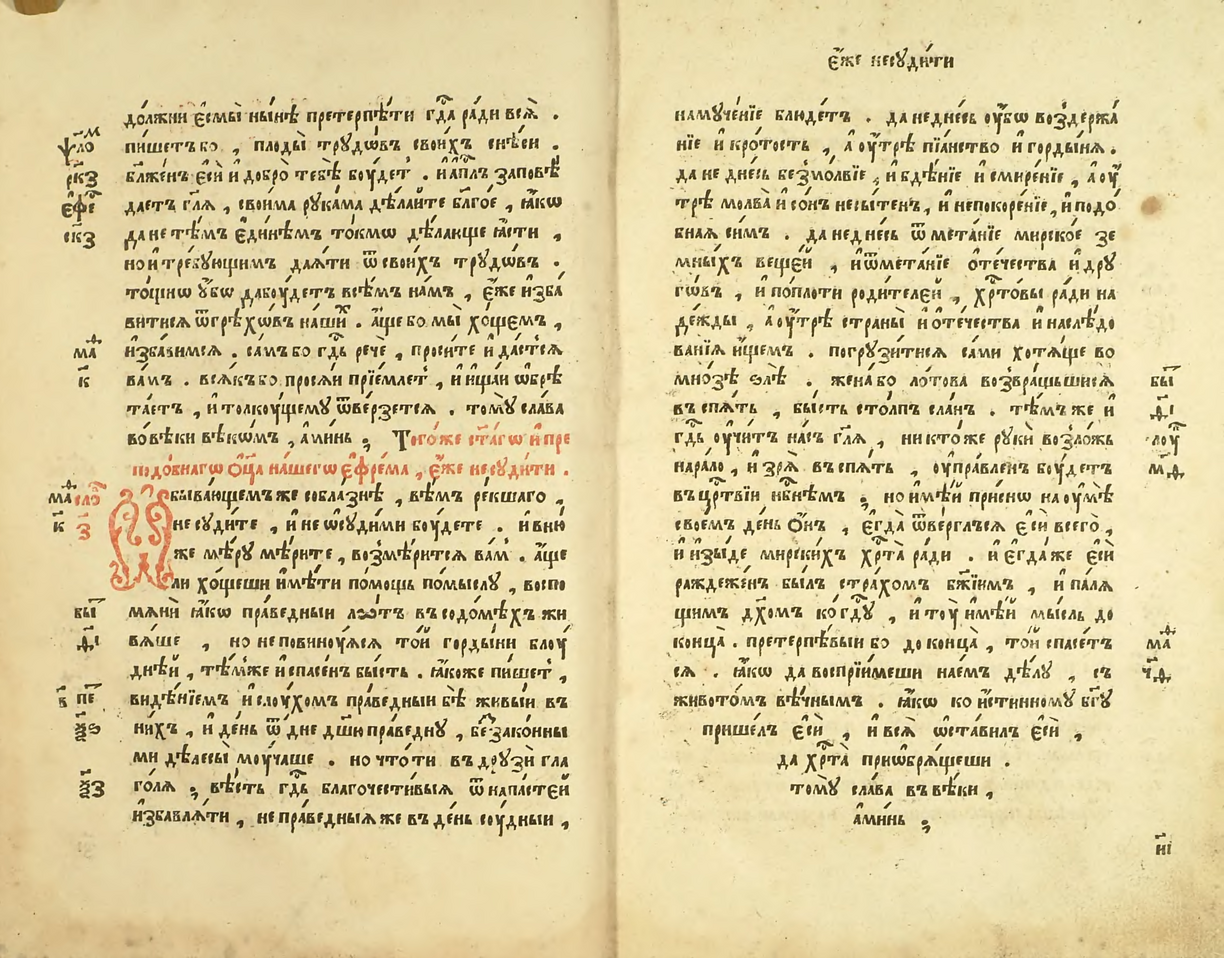 до́лжни є҆смы̀ ны́нѣ претерпѣ́ти гдⷭ҇а ра́ди всѧ̀ .
пи́шетъ бо , плоды̀ трꙋдѡ́въ свои́хъ снѣ́си .
бл҃же́нъ є҆сѝ и҆ добро̀ тебѣ̀ бꙋ́детъ . и҆ а҆пⷭ҇лъ заповѣ́
даетъ гл҃ѧ , свои́ма рꙋка́ма дѣ́лаите бл҃го́е , ꙗ҆́кѡ
да не тѣ́мъ є҆ди́нѣмъ то́кмѡ дѣ́лающе ꙗ҆́сти ,
но и҆ тре́бꙋющимъ даѧ́ти ѿ свои́хъ трꙋдѡ́въ .
то́щнѡ ᲂу҆́бѡ да бꙋ́детъ всѣ́мъ на́мъ , є҆́же и҆зба́
витисѧ ѿ грѣхѡ́въ на́шихъ . а҆́ще бо мы̀ хо́щемъ ,
и҆зба́вимсѧ . са́мъ бо гдⷭ҇ь речѐ , проси́те и҆ да́стсѧ
ва́мъ . всѧ́къ бо просѧ́и прїе́млетъ , и҆ и҆щѧ́и ѡ҆брѣ
та́етъ , и҆ толкꙋ́щемꙋ ѿве́рзетсѧ . томꙋ̀ сла́ва
во вѣ́ки вѣкѡ́мъ , а҆ми́нь ; Того́же ст҃а́гѡ и҆ пре
подо́бнагѡ ѻ҆ц҃а̀ на́шегѡ є҆фре́ма , є҆́же не сꙋди́ти .
быва́ющемъ же собла́знѣ , вѣ́мъ ре́кшаго ,
не сꙋди́те , и҆ не ѡ҆сꙋди́ми бꙋ́дете . и҆ в ню́
же мѣ́рꙋ мѣ́рите , возмѣ́ритсѧ ва́м . а҆́ще
ли хо́щеши и҆мѣ́ти по́мощь по́мыслꙋ , воспо
мѧнѝ ꙗ҆́кѡ пра́ведныи ло́тъ в содо́мѣхъ жи
вѧ́ше , но не повинꙋ́ѧсѧ то́й горды́ни блꙋ́
днѣ́й , тѣ́мже и҆ спасе́нъ бы́сть . ꙗ҆́коже пи́шетъ ,
видѣ́нїемъ и҆ слꙋ́хомъ пра́ведныи бѣ̀ живы́и въ
ни́хъ , и҆ де́нь ѿ дне дш҃ю пра́веднꙋ , беззако́нны
ми дѣлесы̀ мꙋ́чаше . но что́ ти въ дрꙋзі́и гла
го́лѧ ; вѣ́сть гдⷭ҇ь благочести́выѧ ѿ напа́стей
и҆збавлѧ́ти , не пра́ведныѧ же въ де́нь сꙋ́дныи ,
ѱало́м
рк҃з
є҆фе
ск҃з
маѳ
к҃
маѳ
к҃
сло
з҃
бы
д҃і
в҃ пе
є҆́же не сꙋди́ти
на мꙋче́нїе блюде́тъ . да не дне́сь ᲂу҆́бѡ воздержа́
нїе и҆ кро́тость , а҆ ᲂу҆́трѣ пїѧ́нство и҆ горды́нѧ .
да не дне́сь безмо́лвїе , и҆ бдѣ́нїе и҆ смире́нїе , а҆ ᲂу҆́
трѣ молва̀ и҆ со́нъ несы́тенъ , и҆ непокоре́нїе , и҆ подо́
бнаѧ си́мъ . да не дне́сь ѿмета́нїе мирско́е зе
мны́хъ веще́й , и҆ ѿмета́нїе ѻ҆те́чества и҆ дрꙋ
гѡ́въ , и҆ по пло́ти роди́телей , хрⷭ҇то́вы ра́ди на
де́жды , а҆ ᲂу҆́трѣ страны̀ и҆ ѻ҆те́чества и҆ наслѣ́до
ванїѧ и҆́щемъ . погрꙋзи́тисѧ са́ми хотѧ́ще во
мно́зѣ ѕлѣ̀ . жена́ бо ло́това возвра́щьшисѧ
въ спѧ́ть , бы́сть сто́лпъ сла́нъ . тѣ́мъ же и҆
гдⷭ҇ь ᲂу҆чи́тъ на́съ гл҃ѧ , никто́же рꙋкѝ возло́жь
на ра́ло , и҆ зрѧ̀ въ спѧ́ть , ᲂу҆пра́вленъ бꙋ́детъ
въ црⷭ҇твїи нбⷭ҇нѣмъ ; но и҆мѣ́й при́снѡ на ᲂу҆мѣ̀
свое́мъ де́нь ѻ҆́нъ , є҆гда̀ ѿве́рглъсѧ є҆сѝ всего̀ ,
и҆ и҆зы́де мирски́хъ хрⷭ҇та̀ ра́ди . и҆ є҆гда́же є҆сѝ
раждеже́нъ бы́лъ стра́хомъ бж҃їимъ , и҆ палѧ́
щимъ дх҃омъ ко гдⷭ҇ꙋ , и҆ тꙋ̀ и҆мѣ́й мы́сль до
конца̀ . претерпѣ́выи бо до конца̀ , то́й спасе́т
сѧ . ꙗ҆́кѡ да воспрїи́меши нае́мъ дѣ́лꙋ , съ
живото́мъ вѣ́чнымъ . ꙗ҆́кѡ ко и҆́стинномꙋ бг҃ꙋ
прише́лъ є҆сѝ , и҆ всѧ̀ ѡ҆ста́вилъ є҆сѝ ,
да хрⷭ҇та̀ приѡбрѧ́щеши .
томꙋ̀ сла́ва въ вѣ́ки ,
а҆ми́нь ;
бы
д҃і
лꙋ
м҃ѳ
маѳ
ч҃д
н҃і